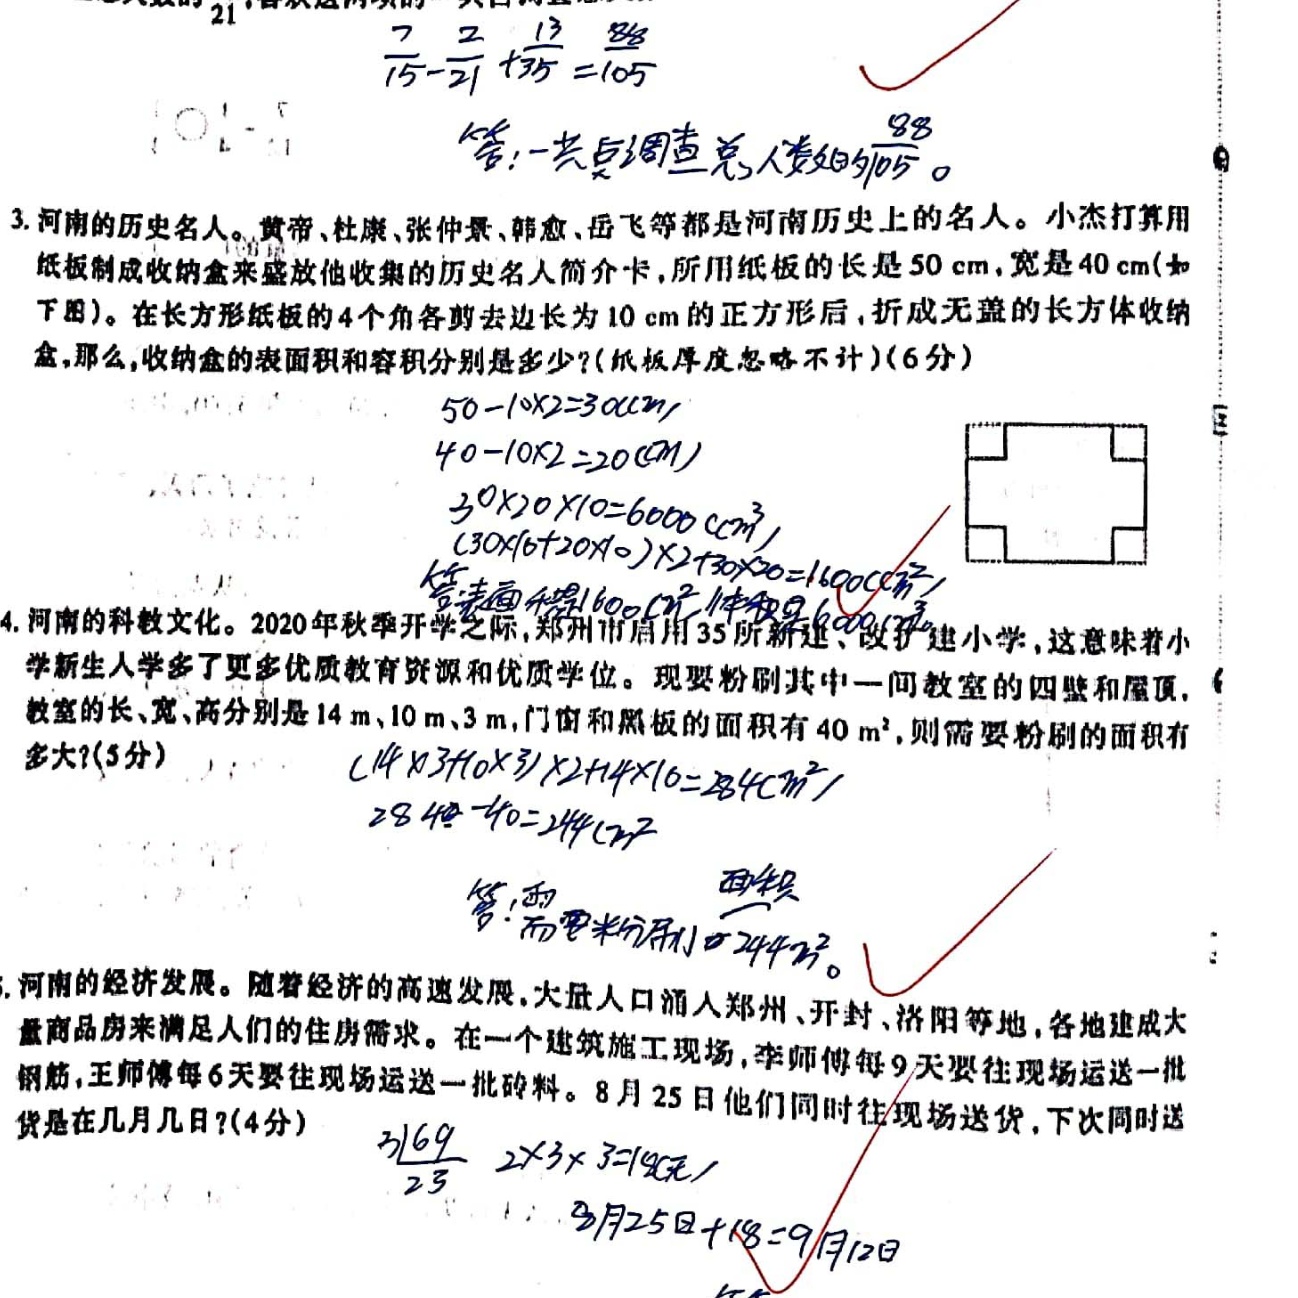 21
7/15 - 2/21 + 13/35 = 88/105
答:一共占调查总人数的88/105。
3. 河南的历史名人。黄帝、杜康、张仲景、韩愈、岳飞等都是河南历史上的名人。小杰打算用
纸板制成收纳盒来盛放他收集的历史名人简介卡,所用纸板的长是50 cm,宽是40 cm(如
下图)。在长方形纸板的4个角各剪去边长为10 cm的正方形后,折成无盖的长方体收纳
盒,那么,收纳盒的表面积和容积分别是多少?(纸板厚度忽略不计)(6分)
50-10×2=30(cm)
40-10×2=20(cm)
30×20×10=6000(cm³)
(30×10+20×10)×2+30×20=1600(cm²)
答:表面积是1600cm²,体积是6000cm³。
4. 河南的科教文化。2020年秋季开学之际,郑州市启用35所新建、改扩建小学,这意味着小
学新生入学多了更多优质教育资源和优质学位。现要粉刷其中一间教室的四壁和屋顶,
教室的长、宽、高分别是14 m、10 m、3 m,门窗和黑板的面积有40 m²,则需要粉刷的面积有
多大?(5分)
(14×3+10×3)×2+14×10=284(m²)
284-40=244(m²
面积
答:需要粉刷244m²。
5. 河南的经济发展。随着经济的高速发展,大量人口涌入郑州、开封、洛阳等地,各地建成大
量商品房来满足人们的住房需求。在一个建筑施工现场,李师傅每9天要往现场运送一批
钢筋,王师傅每6天要往现场运送一批砖料。8月25日他们同时往现场送货,下次同时送
货是在几月几日?(4分)
3|69 2×3×3=18(天)
23
8月25日+18=9月12日